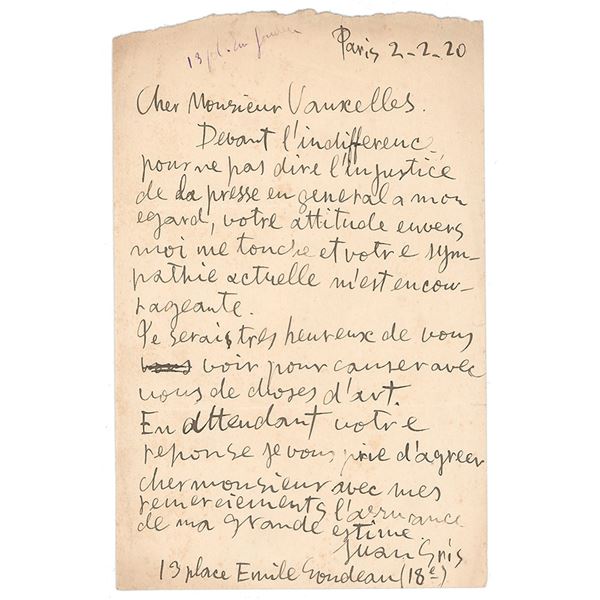 13 pl. du
Paris 2-2-20
Cher Monsieur Vauxelles.
Devant l'indifference
pour ne pas dire l'injustice
de la presse en general a mon
egard, votre attitude envers
moi me touche et votre sym-
pathie actuelle m'est encou-
rageante.
Je serais tres heureux de vous
vous voir pour causer avec
vous de choses d'art.
En attendant votre
reponse je vous prie d'agreer
cher monsieur avec mes
remerciements l'assurance
de ma grande estime
Juan Gris
13 place Emile Goudeau (18e)